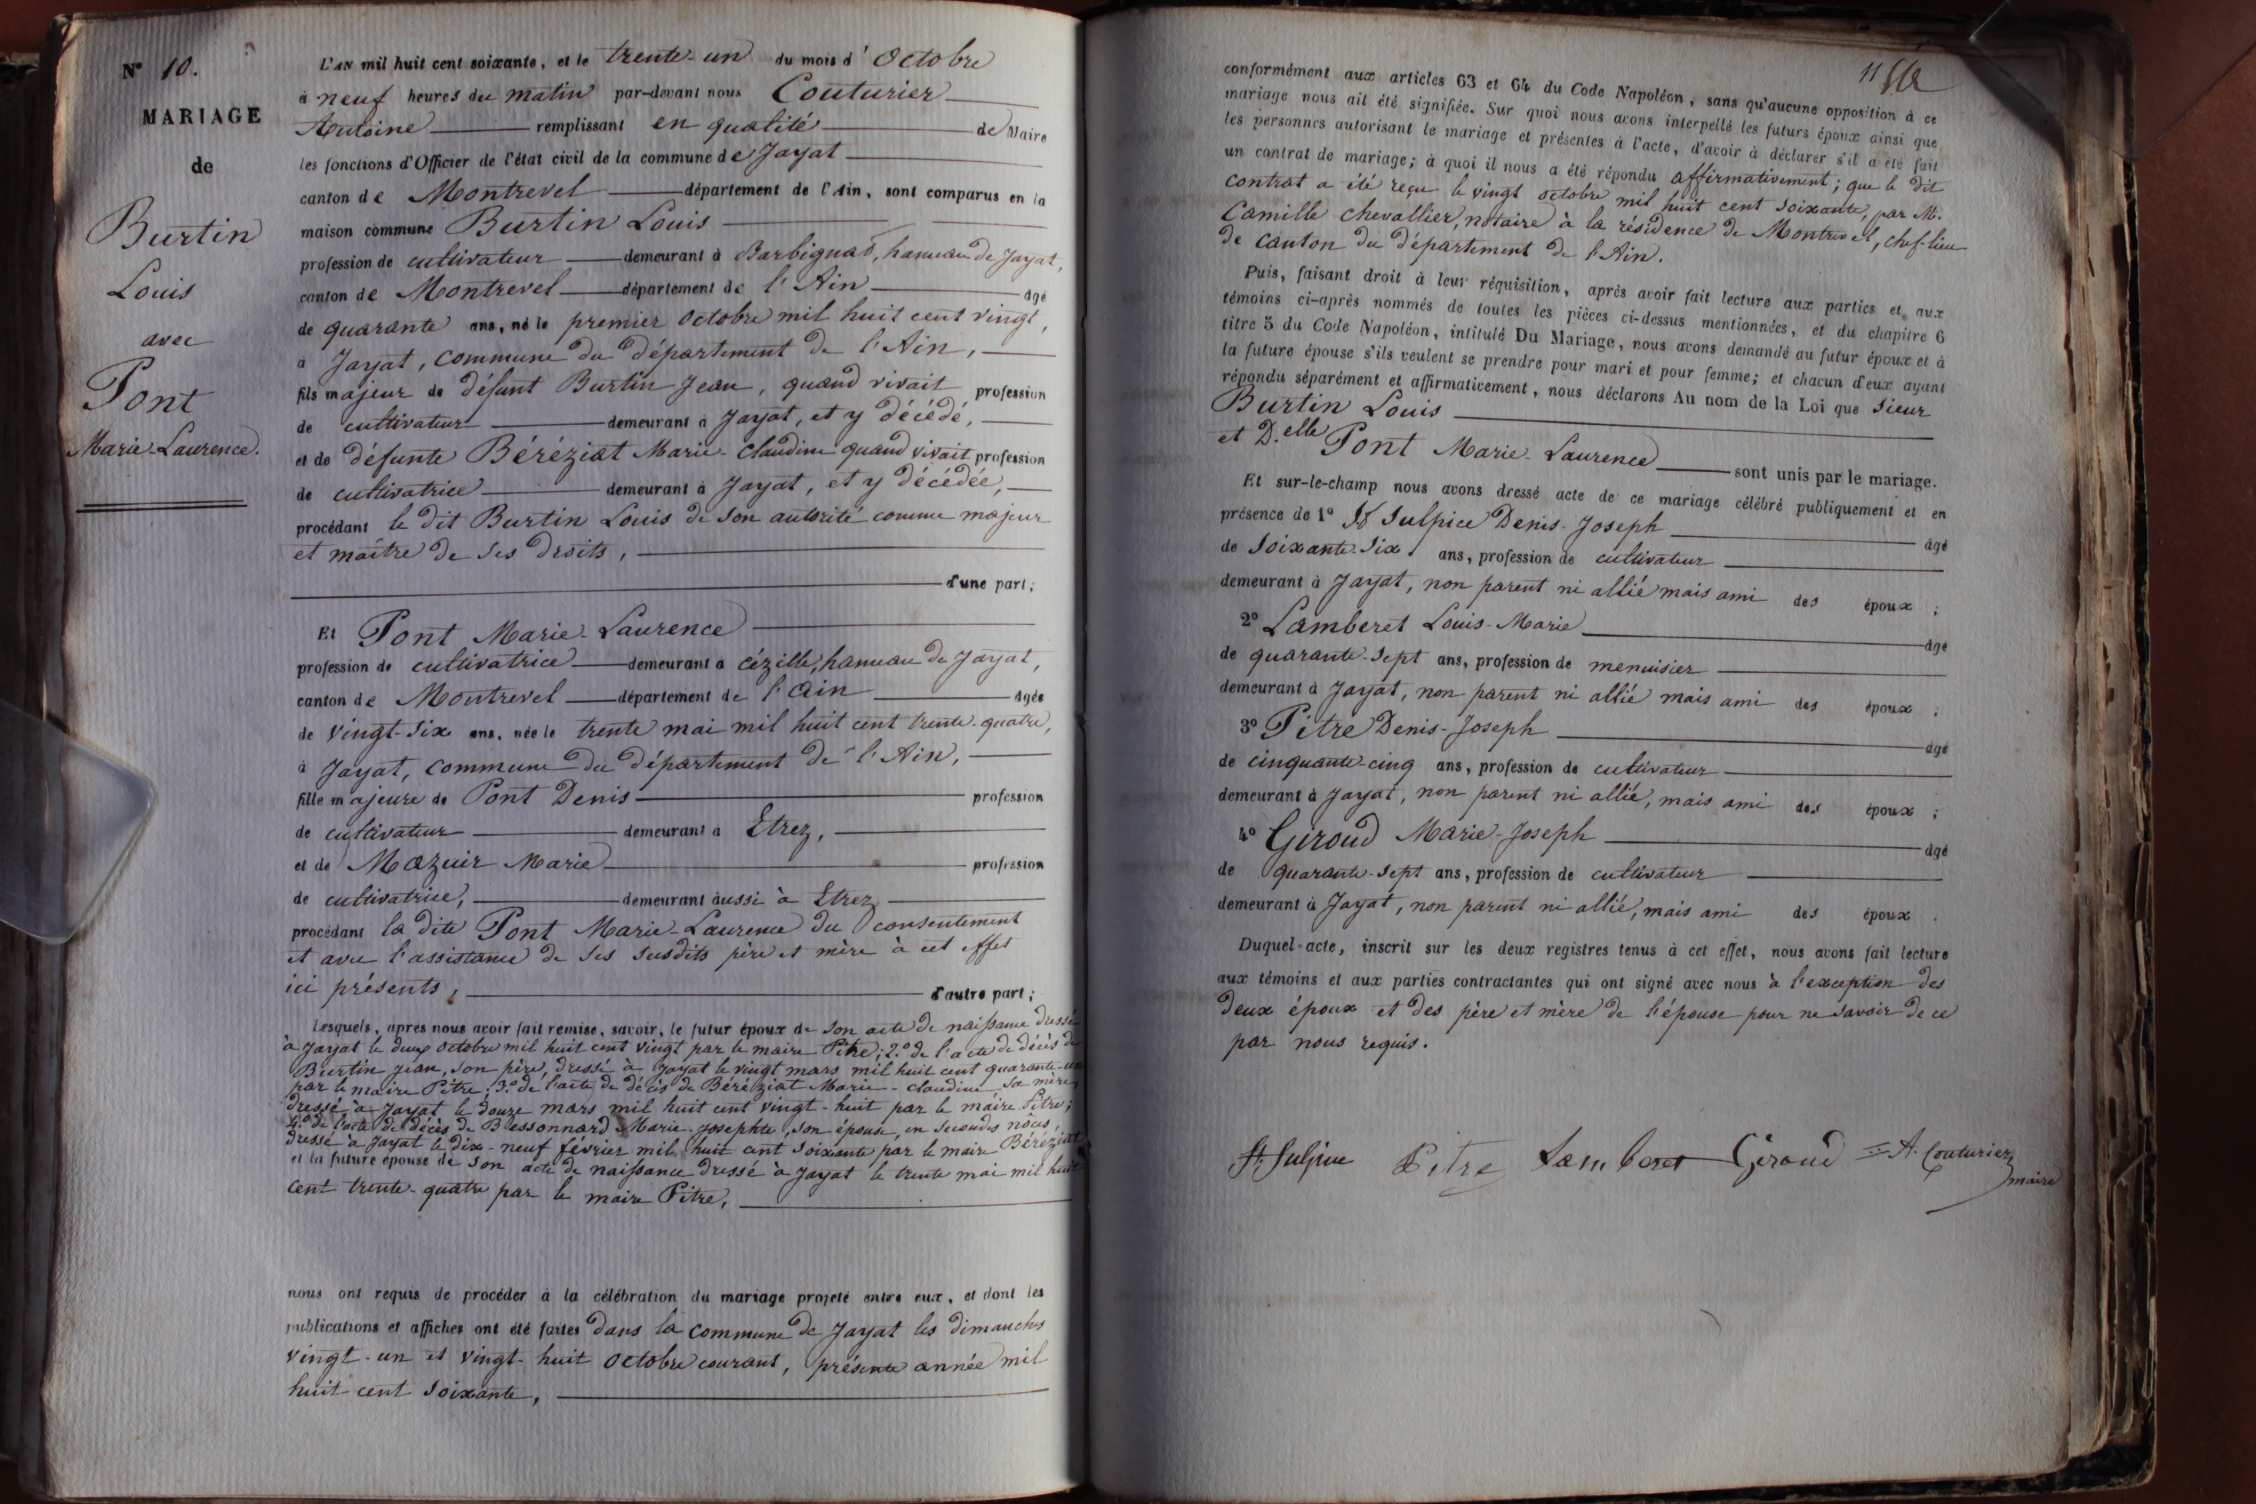 N° 10.
MARIAGE
de
Burtin
Louis
avec
Pont
Marie-Laurence.
L'AN mil huit cent soixante, et le trente-un du mois d'Octobre
à neuf heures du matin par-devant nous Couturier
Antoine remplissant en qualité de Maire
les fonctions d'Officier de l'état civil de la commune de Jayat
canton de Montrevel département de l'Ain, sont comparus en la
maison commune Burtin Louis
profession de cultivateur demeurant à Barbignat, hameau de Jayat,
canton de Montrevel département de l'Ain âgé
de quarante ans, né le premier Octobre mil huit cent vingt,
à Jayat, commune du département de l'Ain,
fils majeur de défunt Burtin Jean, quand vivait profession
de cultivateur demeurant à Jayat, et y décédé,
et de défunte Béréziat Marie-Claudine quand vivait profession
de cultivatrice demeurant à Jayat, et y décédée,
procédant le dit Burtin Louis de son autorité comme majeur
et maître de ses droits,
d'une part;
Et Pont Marie-Laurence
profession de cultivatrice demeurant à Cézille, hameau de Jayat,
canton de Montrevel département de l'Ain âgée
de vingt-six ans, née le trente mai mil huit cent trente-quatre,
à Jayat, commune du département de l'Ain,
fille majeure de Pont Denis profession
de cultivateur demeurant à Etrez,
et de Mazuir Marie profession
de cultivatrice, demeurant aussi à Etrez
procédant la dite Pont Marie-Laurence du consentement
et avec l'assistance de ses susdits père et mère à cet effet
ici présents, d'autre part;
Lesquels, après nous avoir fait remise, savoir, le futur époux de son acte de naissance dressé
à Jayat le deux octobre mil huit cent vingt par le maire Pitre; 2.° de l'acte de décès de
Burtin Jean, son père, dressé à Jayat le vingt mars mil huit cent quarante-un
par le maire Pitre; 3.° de l'acte de décès de Béréziat Marie-Claudine sa mère,
dressé à Jayat le douze mars mil huit cent vingt-huit par le maire Pitre;
4.° de l'acte de décès de Bessonnard Marie-Josephte, son épouse, en secondes nôces,
dressé à Jayat le dix-neuf février mil huit cent soixante par le maire Béréziat
et la future épouse de son acte de naissance dressé à Jayat le trente mai mil huit
cent trente-quatre par le maire Pitre,
nous ont requis de procéder à la célébration du mariage projeté entre eux, et dont les
publications et affiches ont été faites dans la commune de Jayat les dimanches
vingt-un et vingt-huit octobre courant, présente année mil
huit cent soixante,
11
conformément aux articles 63 et 64 du Code Napoléon, sans qu'aucune opposition à ce
mariage nous ait été signifiée. Sur quoi nous avons interpellé les futurs époux ainsi que
les personnes autorisant le mariage et présentes à l'acte, d'avoir à déclarer s'il a été fait
un contrat de mariage; à quoi il nous a été répondu affirmativement; que le dit
contrat a été reçu le vingt octobre mil huit cent soixante, par M.
Camille Chevallier, notaire à la résidence de Montrevel, chef-lieu
de canton du département de l'Ain.
Puis, faisant droit à leur réquisition, après avoir fait lecture aux parties et aux
témoins ci-après nommés de toutes les pièces ci-dessus mentionnées, et du chapitre 6
titre 5 du Code Napoléon, intitulé Du Mariage, nous avons demandé au futur époux et à
la future épouse s'ils veulent se prendre pour mari et pour femme; et chacun d'eux ayant
répondu séparément et affirmativement, nous déclarons Au nom de la Loi que sieur
Burtin Louis
et D.elle Pont Marie-Laurence sont unis par le mariage.
Et sur-le-champ nous avons dressé acte de ce mariage célébré publiquement et en
présence de 1° St Sulpice Denis-Joseph âgé
de soixante-six ans, profession de cultivateur
demeurant à Jayat, non parent ni allié mais ami des époux;
2° Lamberet Louis-Marie âgé
de quarante-sept ans, profession de menuisier
demeurant à Jayat, non parent ni allié mais ami des époux;
3° Pitre Denis-Joseph âgé
de cinquante-cinq ans, profession de cultivateur
demeurant à Jayat, non parent ni allié, mais ami des époux;
4° Giroud Marie-Joseph âgé
de quarante-sept ans, profession de cultivateur
demeurant à Jayat, non parent ni allié, mais ami des époux.
Duquel acte, inscrit sur les deux registres tenus à cet effet, nous avons fait lecture
aux témoins et aux parties contractantes qui ont signé avec nous à l'exception des
deux époux et des père et mère de l'épouse pour ne savoir de ce
par nous requis.
St Sulpice Pitre Lamberet Giroud A. Couturier
maire